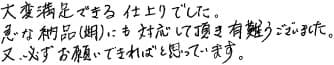 大変満足できる仕上りでした。
急な納品(期)にも対応して頂き有難うございました。
又、必ずお願いできればと思っています。